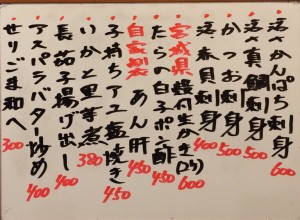 活かんぱち刺身 600
活真鯛刺身 500
かつお刺身 500
活赤貝刺身 400
宮城県 殻付生かき(2ケ) 600
たらの白子ポン酢 450
自家製 あん肝 450
子持ちアユ塩焼き 450
いかと里芋煮 380
長茄子揚げ出し 400
アスパラバター炒め 400
せりごま和へ 300